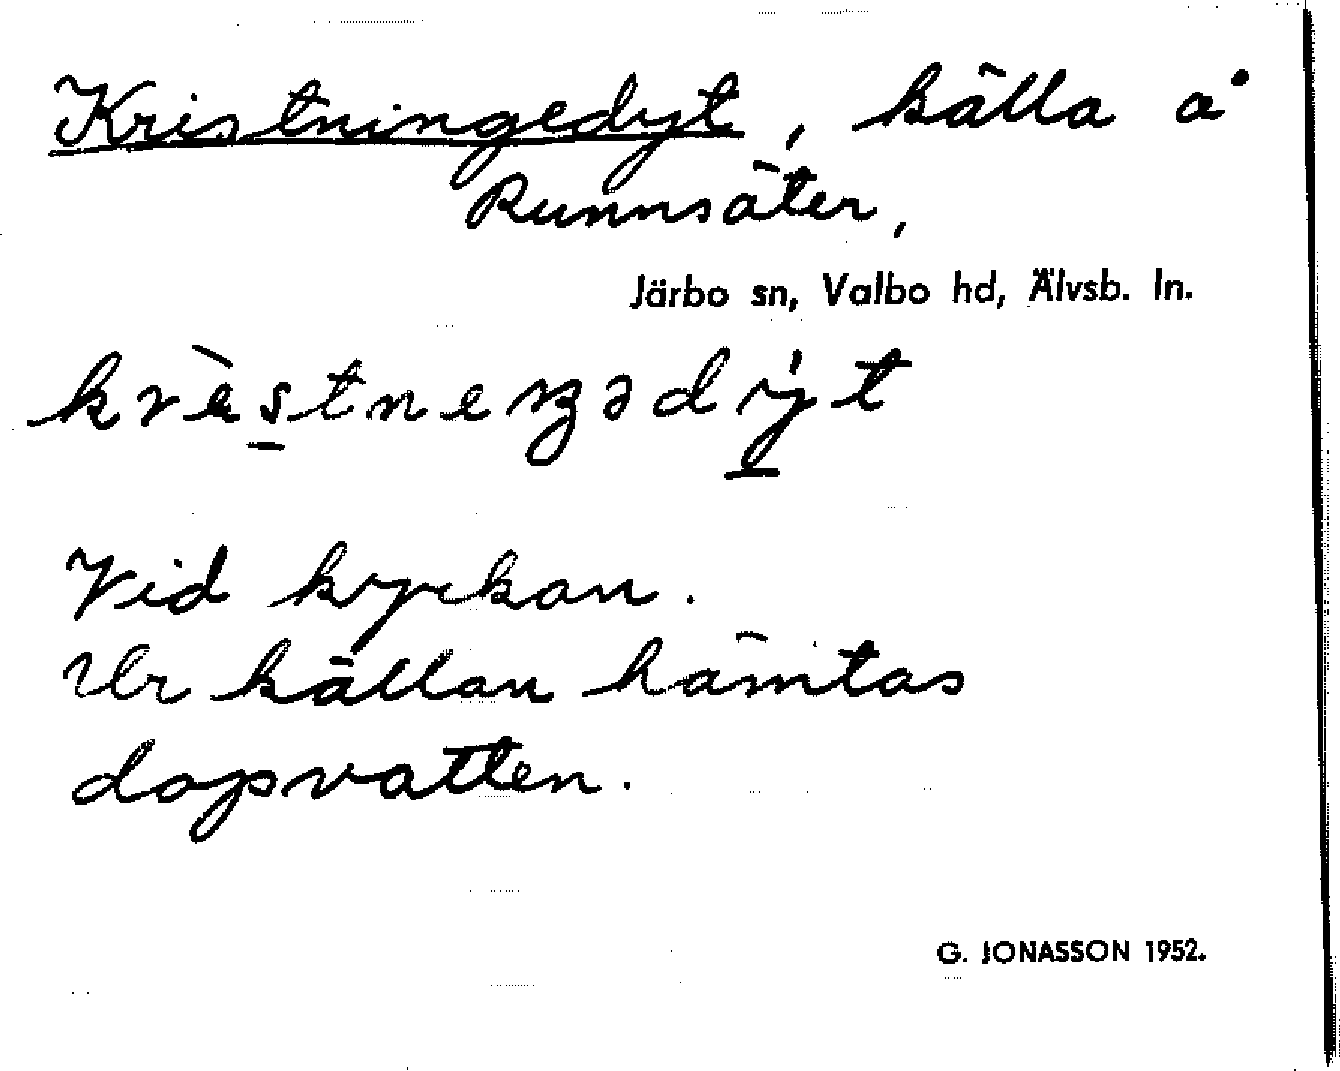 Kristningedyt, källa å
Runnsäter,
Järbo sn, Valbo hd, Älvsb. ln.
krèstneŋədýt
Vid kyrkan.
Ur källan hämtas
dopvatten.
G. JONASSON 1952.